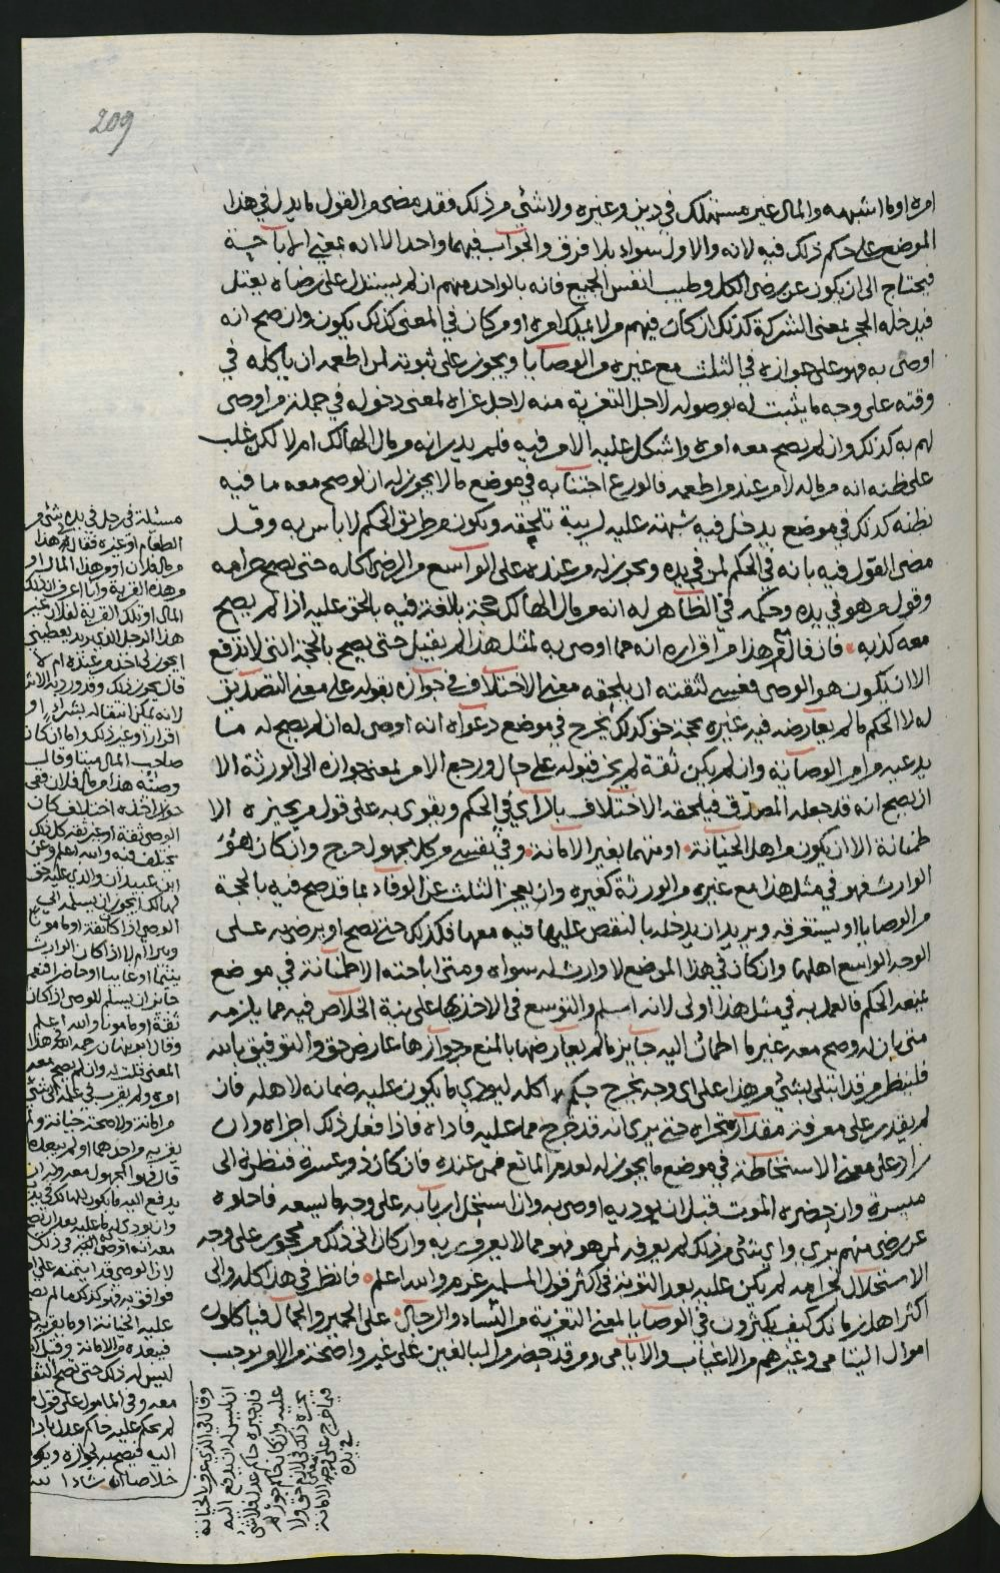 209
امره او ما اشبهه والمال غير مستهلك في دين وغيره ولا شئ من ذلك فقد مضى من القول ما يدل في هذا
الموضع على حكم ذلك فيه لانه والاول سواء بلا فرق والجواب فيهما واحد الا انه بمعنى الاباحة
فيحتاج الى ان يكون عن رضى الكل وطيب انفس الجميع فانه بالواحد منهم ان لم يستدل على رضاه
فيدخله الحجر لمعنى الشركة كذلك ان كان فيهم من لا يملك امره او من كان في المعنى كذلك يكون وان صح انه
اوصى به فهو على جوازه في الثلث مع غيره من الوصايا ويجوز على ثبوته لمن اطعمه ان ياكله في
وقته على وجه ما يثبت له بوصوله لاجل التعزية منه لاجل عزاه لمعنى دخوله في جملة من اوصى
لهم به كذلك وان لم يصح معه امره واشكل عليه الامر فيه فلم يدر انه من مال الهالك ام لا لكن غلب
على ظنه انه من ماله لامر عند من اطعمه فالورع اجتنابه في موضع ما لا يجوز له ان لو صح معه ما فيه
بظنه كذلك في موضع يدخل فيه شبهة عليه لريبة تلحقه ويكون من طريق الحكم لا باس به وقد
مضى القول فيه بانه في الحكم لمن في يده ويجوز له من عنده على الواسع من الرضى اكله حتى يصح حرامه
وقول من هو في يده وحكمه في الظاهر له انه من مال الهالك حجة بالغة فيه بالحق عليه اذا لم يصح
معه كذبه فان قال من هذا من اقراره انه مما اوصى به لمثل هذا لم يقبل حتى يصح بالحجة التي لا تدفع
الا ان يكون هو الوصي فعسى لثقته ان يلحقه معنى الاختلاف في جوازه بقوله على معنى التصديق
له لا الحكم ما لم يعارضه فيه غيره بحجة حق كذلك يخرج في موضع دعواه انه اوصى له ان لم يصح له ما
يدعيه من امر الوصاية وان لم يكن ثقة لم يجز قبوله على حال ورجع الامر لمعنى جوازه الى الورثة الا
ان يصح انه قد جعله المصدق فيلحقه الاختلاف بالراي في الحكم ويقوى به على قول من يجيزه الا
طمانة الا ان يكون من اهل الخيانة او متهما بغير الامانة وفي نفسي من كل مجهول حرج وان كان هو
الوارث فهو في مثل هذا مع غيره من الورثة كغيره وان يعجز الثلث عن الوفاء بما قد صح فيه بالحجة
من الوصايا او يستغرقه ويريد ان يدخله بالنقص عليها فيه معها فكذلك حتى تصح او يرضى به على
الوجه الواسع اهلها وان كان في هذا الموضع لا وارث له سواه ومتى اباحته الاطمانة في موضع
منعه الحكم فالعمل به في مثل هذا اولى لانه اسلم والتوسع في الاخذ بها على نية الخلاص فيه مما يلزمه
متى بان له وصح معه غير ما اطمان اليه جايز ما لم يعارضها بالمنع من جوازها عارض حق والتوفيق بالله
فلينظر من قد ابتلى بشئ من هذا على اي وجه يخرج حكم اكله ليودي ما يكون عليه ضمانه لاهله فان
لم يقدر على معرفة مقداره تحراه حتى يرى انه قد خرج مما عليه فاداه فاذا فعل ذلك اجزاه وان
زاد على معنى الاستحاطة في موضع ما يجوز له لعدم المانع فمن عنده فان كان ذو عسرة فنظرة الى
ميسرة وان حضره الموت قبل ان يوديه اوصى به وان استحل اربابه على وجه ما يسعه فاحلوه
عن رضى منهم برئ واي شئ من ذلك لم يعرفه لمن هو فهو مما لا يعرف ربه وان كان اتى ذلك من محجور على وجه
الاستحلال لحرامه لم يكن عليه بعد التوبة في اكثر قول المسلمين غرم والله اعلم فانظر في هذا كله والى
اكثر اهل زمانك كيف يكثرون في الوصايا لمعنى التعزية من النساء والرجال على الحمير والجمال فياكلون
اموال اليتامى وغيرهم من الاغياب والايامى ومن قد حضر من البالغين على غير واضحة من الامر توجب
مسئلة في رجل في يده شئ من
الطعام او غيره فقال هذا
من مال فلان او من هذا المال او
من هذه القرية وانا اعرف ان ذلك
المال او تلك القرية لفلان غير
هذا الرجل الذي يريد يعطيني
ايجوز لي اخذه من عنده ام لا
قال يجوز ذلك
لانه يمكن انتقاله بشراء او
اقرار او غير ذلك واما ان كان
صاحب المال ميتا وقال
وصيه هذا من مال فلان ففي
جواز اخذه اختلاف كان
الوصي ثقة او غير ثقة كل ذلك
مختلف فيه والله اعلم وعن
ابن عبيدان والذي عليه حق
لهالك ايجوز ان يسلمه الى
الوصي اذا كان ثقة او مامونا
ويبرا ام لا اذا كان الوارث
يتيما او غايبا او حاضرا فنعم
جايز ان يسلم للوصي اذا كان
ثقة او مامونا والله اعلم
وقال ابو نبهان رحمه الله هذا
المعنى قلت له وان لم يصح معه
امره ولم يقرب في علمه الى شئ
من امانة ولا صحة خيانة ولم
يقر به من احدهما او لم يبعده
قال فهو المجهول معه وليس له ان
يدفع اليه ما يكون للهالك في يده
وان يودي له ما عليه بعد ان تصح
معه انه اوصى اليه في ذلك
لان الوصي قد ايتمنه على
فوافق به فهو كذلك ما لم تصح
عليه الخيانة او ما يقربه
فيبعده من الامانة وقيل انه
ليس له ذلك حتى تصح الثقة
معه وفي المامون على قول من
لم يحكم عليه حاكم عدل باداه
اليه فيصح جوازه ويكون
خلاصا ان شاء الله
وقال في الذي عرف بالخيانة
انه ليس له ان يدفع اليه
فان جبره حاكم عدل فلا شئ
عليه وان كان حاكم جور لم
يجزه ذلك لانه لا حق ولا
في يده